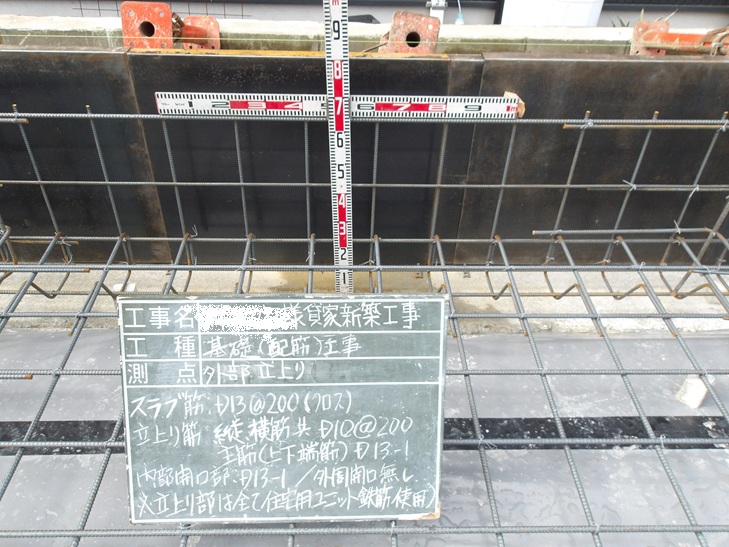 9
8
7
6
5
4
3
2
1
1 2 3 4 5 6 7 8 9
工事名 様貸家新築工事
工種 基礎(配筋)工事
測点 外部立上り
スラブ筋:D13@200(クロス)
立上り筋 縦横筋共D10@200
主筋(上下端筋)D13-1
内部開口部:D13-1/外周開口無し.
※立上り部は全て住宅用ユニット鉄筋使用)